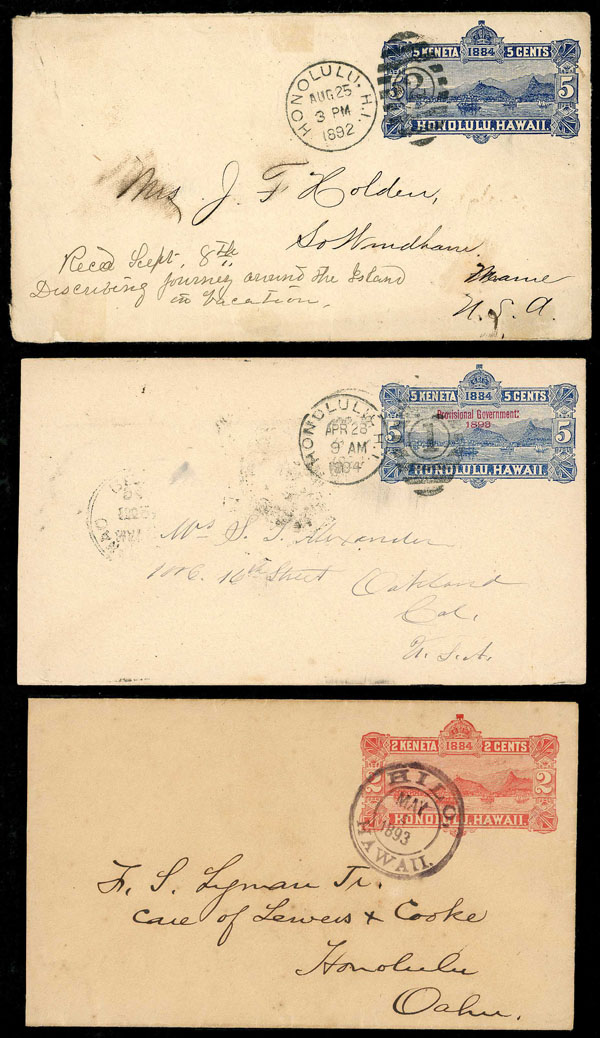 5 KENETA 1884 5 CENTS
5 5
HONOLULU, HAWAII.
HONOLULU, H.I.
AUG 25
3 PM
1892
2
Mrs J. F Holden,
So Windham
Maine
U. S. A.
Recd Sept. 8th
Discribing journey around the Island
in Vacation.
5 KENETA 1884 5 CENTS
Provisional Government:
1893
5 5
HONOLULU, HAWAII.
HONOLULU H.I.
APR 28
9 AM
1894
1
Mrs S. T. Alexander
16th Street Oakland
Cal.
U. S. A.
2 KENETA 1884 2 CENTS
2 2
HONOLULU, HAWAII.
HILO,
MAY
1893
HAWAII.
F. S. Lyman Jr.
Care of Lewers & Cooke
Honolulu
Oahu.